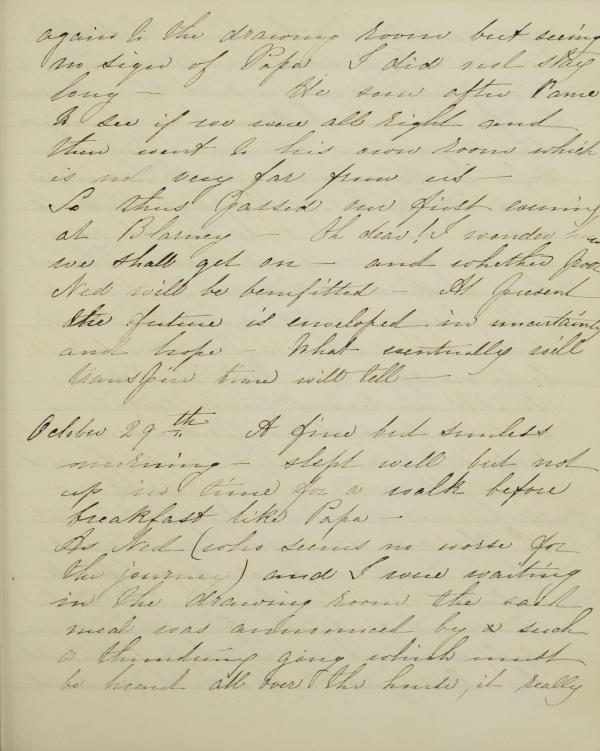 again to the drawing room but seeing
no sign of Papa I did not stay
long — He soon after came
to see if we were all right and
then went to his own room which
is not very far from us —
So thus passed our first evening
at Blarney — Oh dear! I wonder how
we shall get on — and whether poor
Ned will be benefitted — At present
the future is enveloped in uncertainty
and hope — What eventually will
transpire time will tell —
October 29th A fine but sunless
morning — slept well but not
up in time for a walk before
breakfast like Papa —
As Ned (who seems no worse for
the journey) and I were waiting
in the drawing room the said
meal was announced by such
a thundering gong which must
be heard all over the house, it really